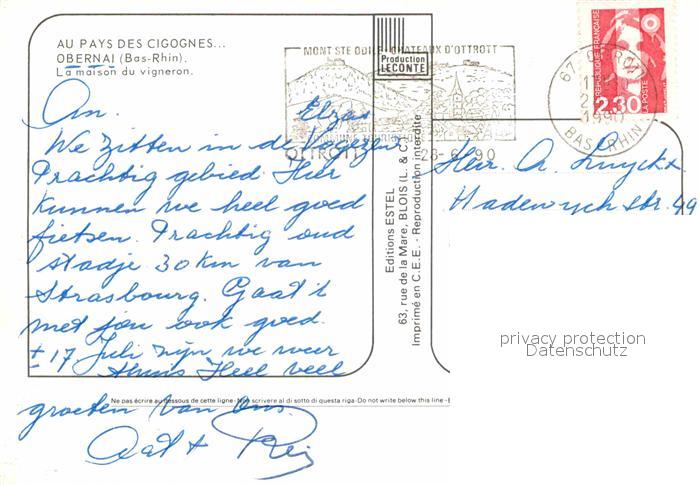 AU PAYS DES CIGOGNES...
OBERNAI (Bas-Rhin).
La maison du vigneron.
Production
LECONTE
MONT STE ODILE-CHATEAUX D'OTTROTT
OTTROTT 28-6-90
67 OTTROTT
1990
BAS-RHIN
REPUBLIQUE FRANÇAISE
2,30
LA POSTE
An. Elzas
We zitten in de Vogezen
Prachtig gebied. Hier
kunnen we heel goed
fietsen. Prachtig oud
stadje 30 km van
Strasbourg. Gaat 't
met jou ook goed.
± 17 Juli zijn we weer
thuis Heel veel
groeten van ons.
Aat +
Editions ESTEL
63, rue de la Mare, BLOIS (L. & C.)
Imprimé en C.E.E. - Reproduction interdite
Heer A.
Hadewych str. 49
privacy protection
Datenschutz
Ne pas écrire au dessous de cette ligne - Non scrivere al di sotto di questa riga - Do not write below this line -